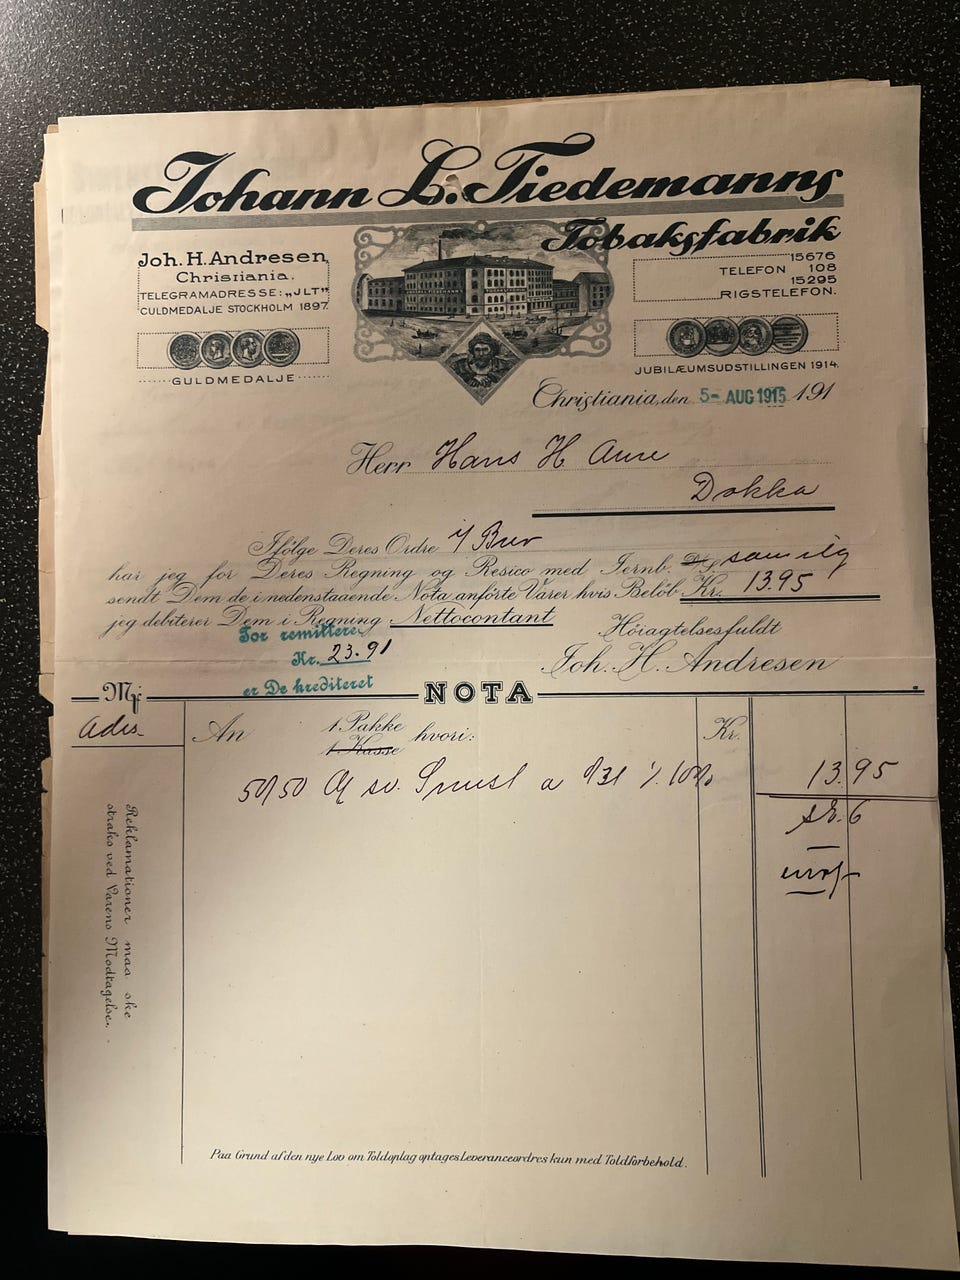 Johann L. Tiedemanns
Tobaksfabrik
Joh. H. Andresen,
Christiania.
TELEGRAMADRESSE: „JLT”
GULDMEDALJE STOCKHOLM 1897.
GULDMEDALJE
15676
TELEFON 108
15295
RIGSTELEFON.
JUBILÆUMSUDSTILLINGEN 1914.
Christiania, den 5- AUG 1915 191
Herr Hans H
Dokka
Ifölge Deres Ordre i/ Brev
har jeg for Deres Regning og Resico med Jernb.
sendt Dem de i nedenstaaende Nota anförte Varer hvis Belöb Kr. 13.95
jeg debiterer Dem i Regning Nettocontant
Höiagtelsesfuldt
Joh. H. Andresen
For remitteret
Kr. 23.91
er De krediteret
Mrk NOTA
Adrs.
An 1 Pakke hvori: Kr.
1 Kasse
50/50 sv. a 10% 13.95
Reklamationer maa ske
straks ved Varens Modtagelse.
Paa Grund af den nye Lov om Toldoplag optages Leveranceordres kun med Toldforbehold.